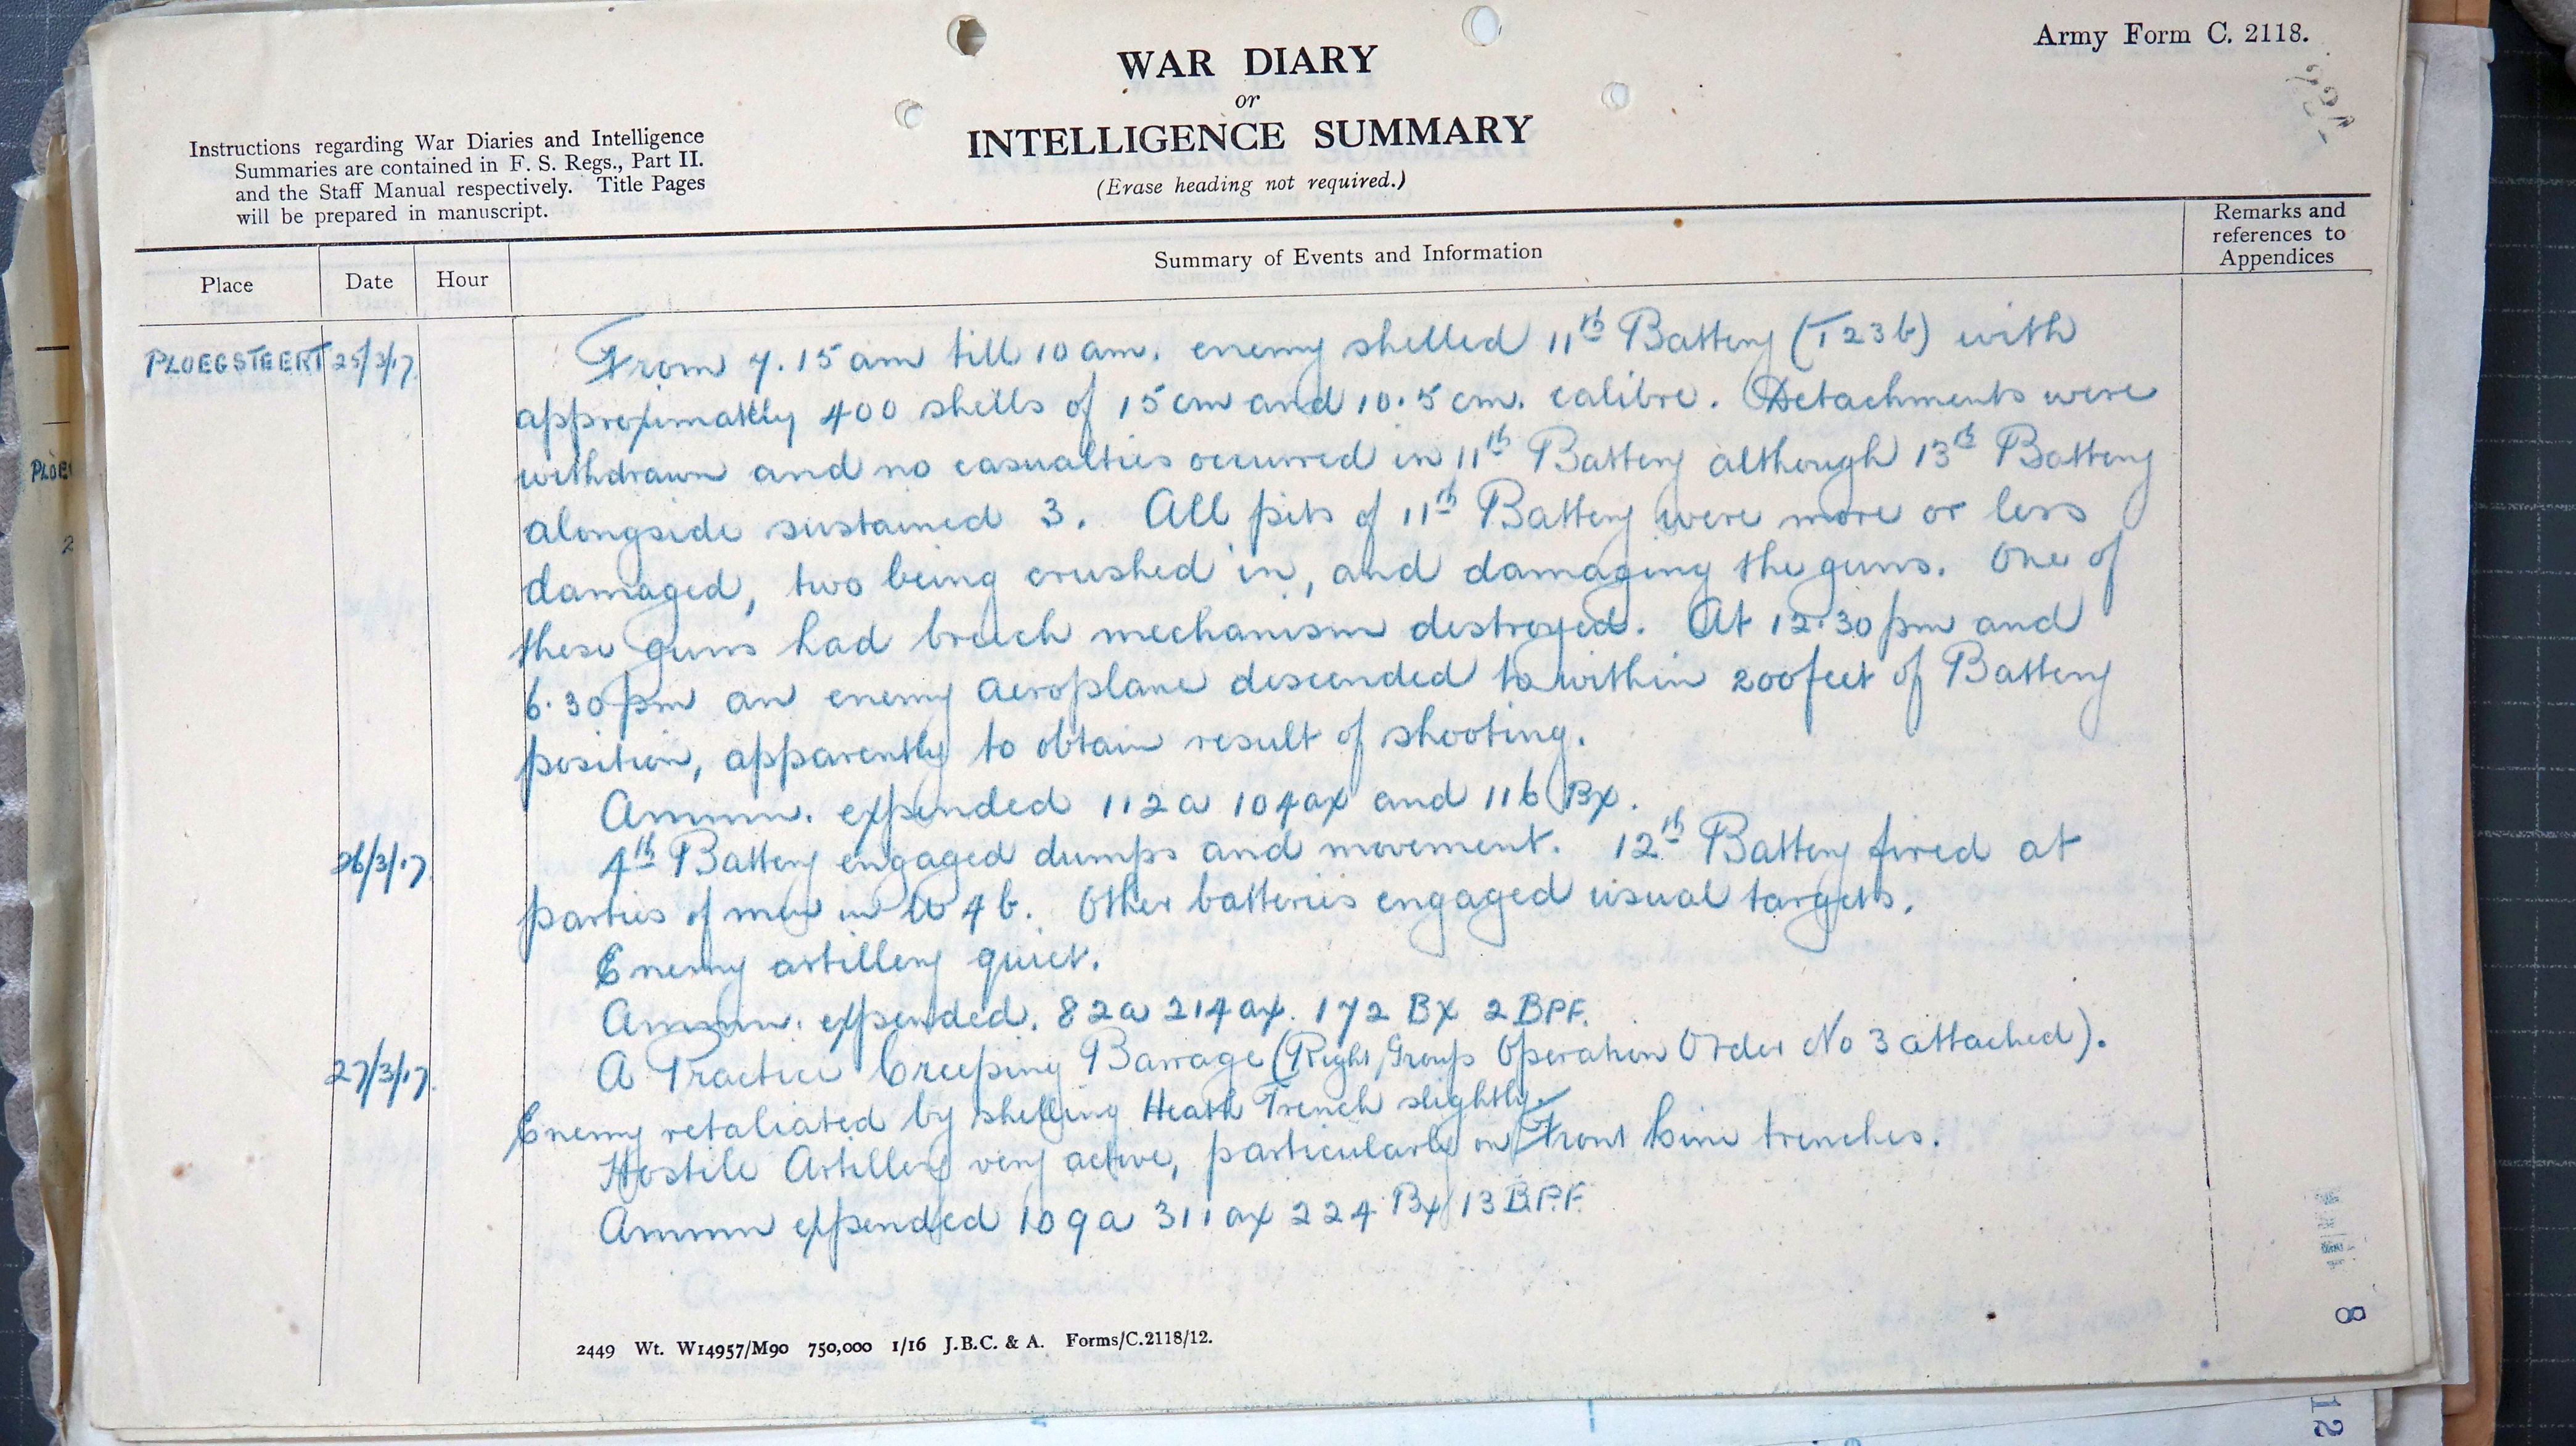 Army Form C. 2118.
WAR DIARY
or
INTELLIGENCE SUMMARY
(Erase heading not required.)
Instructions regarding War Diaries and Intelligence
Summaries are contained in F. S. Regs., Part II.
and the Staff Manual respectively. Title Pages
will be prepared in manuscript.
Place Date Hour Summary of Events and Information Remarks and references to Appendices
PLOEGSTEERT 25/3/17. From 7.15 am till 10 am. enemy shelled 11th Battery (T 23 b) with
approximately 400 shells of 15 cm and 10.5 cm. calibre. Detachments were
withdrawn and no casualties occurred in 11th Battery although 13th Battery
alongside sustained 3. All pits of 11th Battery were more or less
damaged, two being crushed in, and damaging the guns. One of
these guns had breech mechanism destroyed. At 12.30 pm and
6.30 pm an enemy aeroplane descended to within 200 feet of Battery
position, apparently to obtain result of shooting.
Ammn. expended 112 a 104 ax and 116 Bx.
26/3/17. 4th Battery engaged dumps and movement. 12th Battery fired at
parties of men in U 4 b. Other batteries engaged usual targets.
Enemy artillery quiet.
Ammn. expended. 82 a 214 ax. 172 BX 2 BPF.
27/3/17. A Practice Creeping Barrage (Right Group Operation Order No 3 attached).
Enemy retaliated by shelling Heath Trench slightly.
Hostile Artillery very active, particularly on Front line trenches.
Ammn expended 109 a 311 ax 224 Bx 13 B.P.F.
2449 Wt. W14957/M90 750,000 1/16 J.B.C. & A. Forms/C.2118/12.
8
12